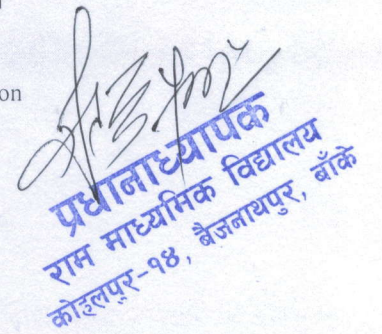 on
प्रधानाध्यापक
राम माध्यमिक विद्यालय
कोहलपुर-१४, बैजनाथपुर, बाँके